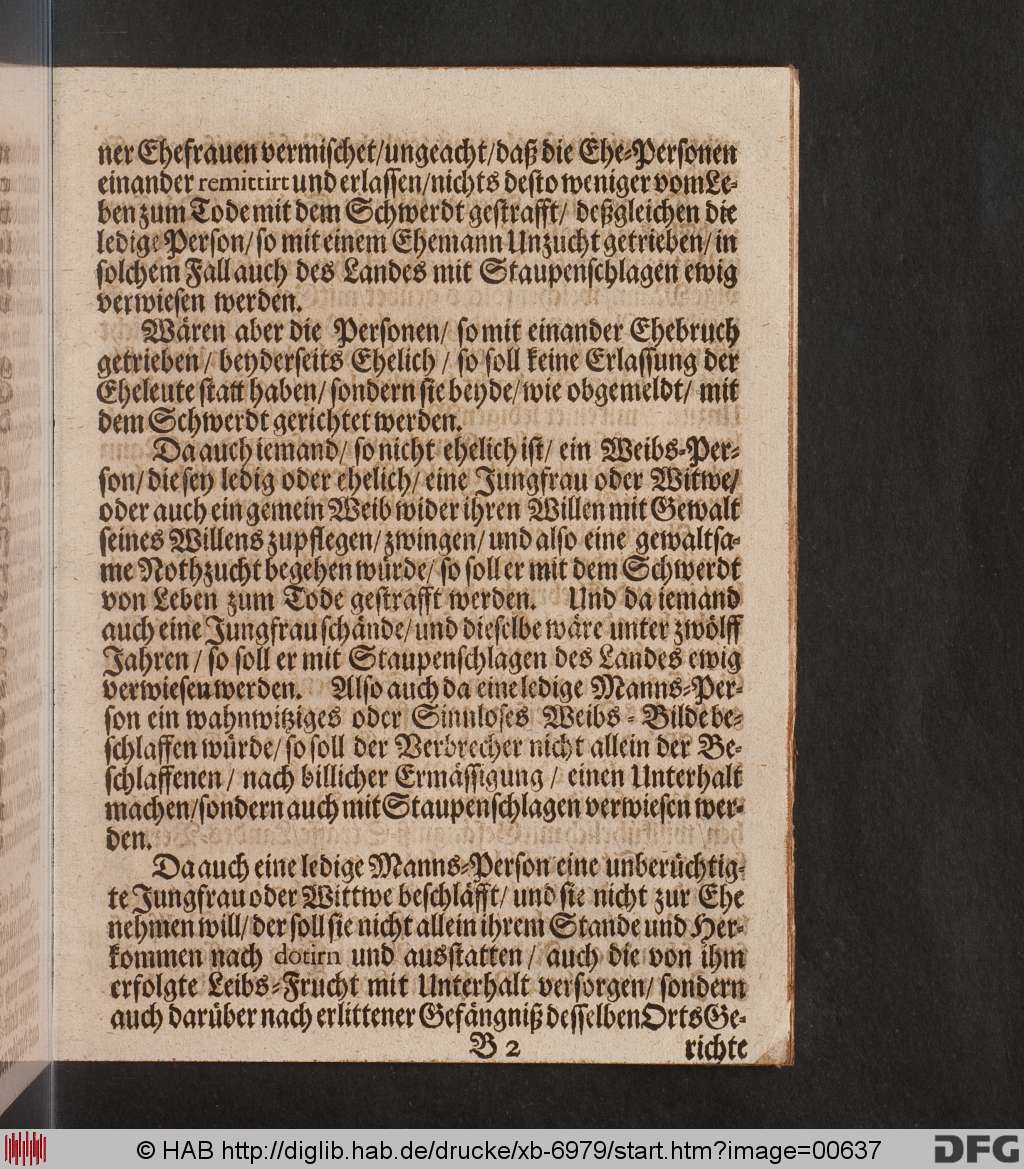 ner Ehefrauen vermischet/ungeacht/daß die Ehe-Personen
einander remittirt und erlassen/nichts desto weniger vom Le-
ben zum Tode mit dem Schwerdt gestrafft/ deßgleichen die
ledige Person/ so mit einem Ehemann Unzucht getrieben/ in
solchem Fall auch des Landes mit Staupenschlagen ewig
verwiesen werden.
Wären aber die Personen/ so mit einander Ehebruch
getrieben/ beyderseits Ehelich/ so soll keine Erlassung der
Eheleute statt haben/ sondern sie beyde/ wie obgemeldt/ mit
dem Schwerdt gerichtet werden.
Da auch iemand/ so nicht ehelich ist/ ein Weibs-Per-
son/ die sey ledig oder ehelich/ eine Jungfrau oder Witwe/
oder auch ein gemein Weib wider ihren Willen mit Gewalt
seines Willens zupflegen/ zwingen/ und also eine gewaltsa-
me Nothzucht begehen würde/ so soll er mit dem Schwerdt
von Leben zum Tode gestrafft werden. Und da iemand
auch eine Jungfrau schände/ und dieselbe wäre unter zwölff
Jahren/ so soll er mit Staupenschlagen des Landes ewig
verwiesen werden. Also auch da eine ledige Manns-Per-
son ein wahnwitziges oder Sinnloses Weibs-Bilde be-
schlaffen würde/ so soll der Verbrecher nicht allein der Be-
schlaffenen/ nach billicher Ermässigung/ einen Unterhalt
machen/sondern auch mit Staupenschlagen verwiesen wer-
den.
Da auch eine ledige Manns-Person eine unberüchtig-
te Jungfrau oder Wittwe beschläfft/ und sie nicht zur Ehe
nehmen will/ der soll sie nicht allein ihrem Stande und Her-
kommen nach dotirn und ausstatten/ auch die von ihm
erfolgte Leibs-Frucht mit Unterhalt versorgen/ sondern
auch darüber nach erlittener Gefängniß desselben Orts Ge-
B 2 richte
© HAB http://diglib.hab.de/drucke/xb-6979/start.htm?image=00637
DFG